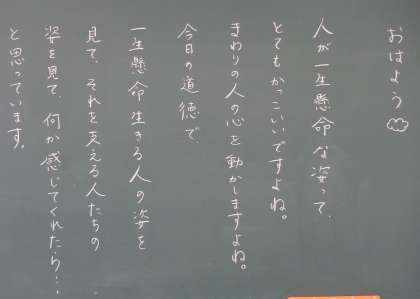 おはよう
人が一生懸命な姿って、
とてもかっこいいですよね。
まわりの人の心を動かしますよね。
今日の道徳で、
一生懸命生きる人の姿を
見て、それを支える人たちの
姿を見て、何か感じてくれたら…
と思っています。